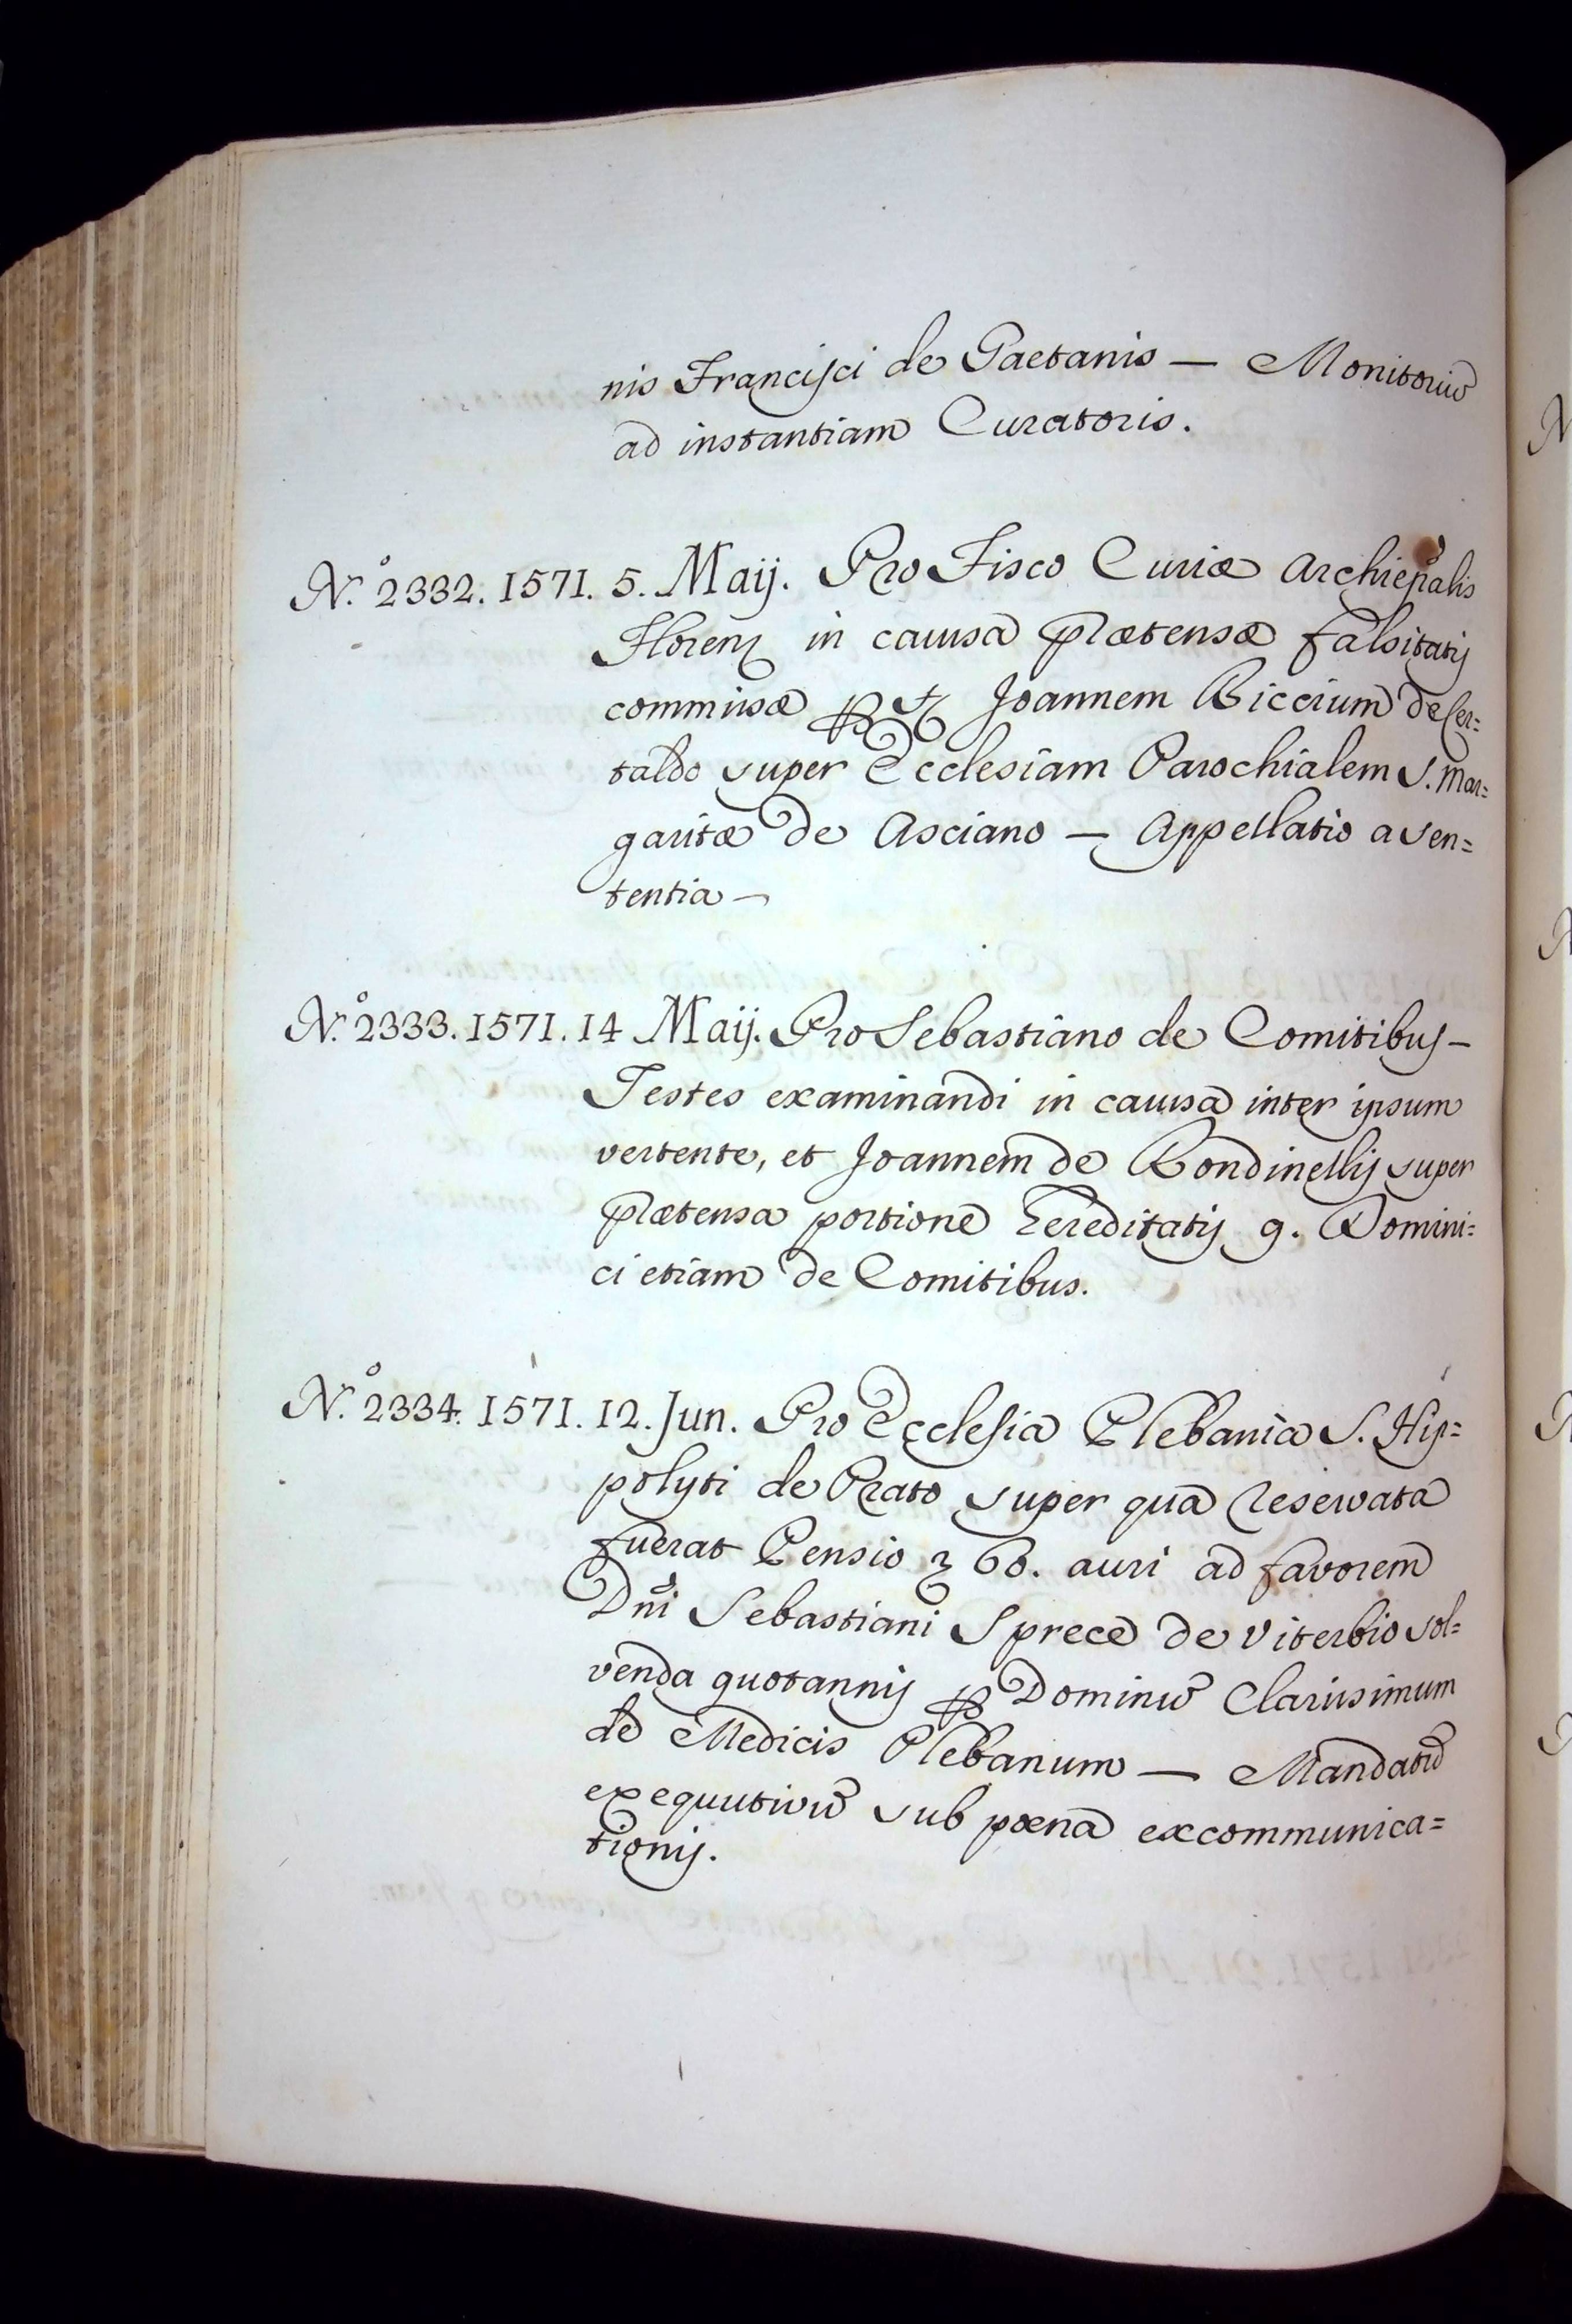 nis Francisci de Gaetanis — Monitoriũ
ad instantiam Curatoris.
N.º 2332. 1571. 5. Maij. Pro Fisco Curiæ Archiepalis
Floren in causa prætensæ falsitatis
commissæ Joannem Riccium de Cer=
taldo super Ecclesiam Parochialem S. Mar=
garitæ de Asciano — Appellatio a sen=
tentia —
N.º 2333. 1571. 14 Maij. Pro Sebastiano de Comitibus —
Testes examinandi in causa inter ipsum
vertente, et Joannem de Rondinellis super
prætensa portione hereditatis q. Domini=
ci etiam de Comitibus.
N.º 2334. 1571. 12. Jun. Pro Ecclesia Plebania S. Hip=
polyti de Prato super qua reservata
fuerat Pensio 60. auri ad favorem
Dñi Sebastiani Sprece de Viterbio sol=
venda quotannis p Dominũ Clarissimum
de Medicis Plebanum — Mandatũ
exequutivũ sub pœna excommunica=
tionis.